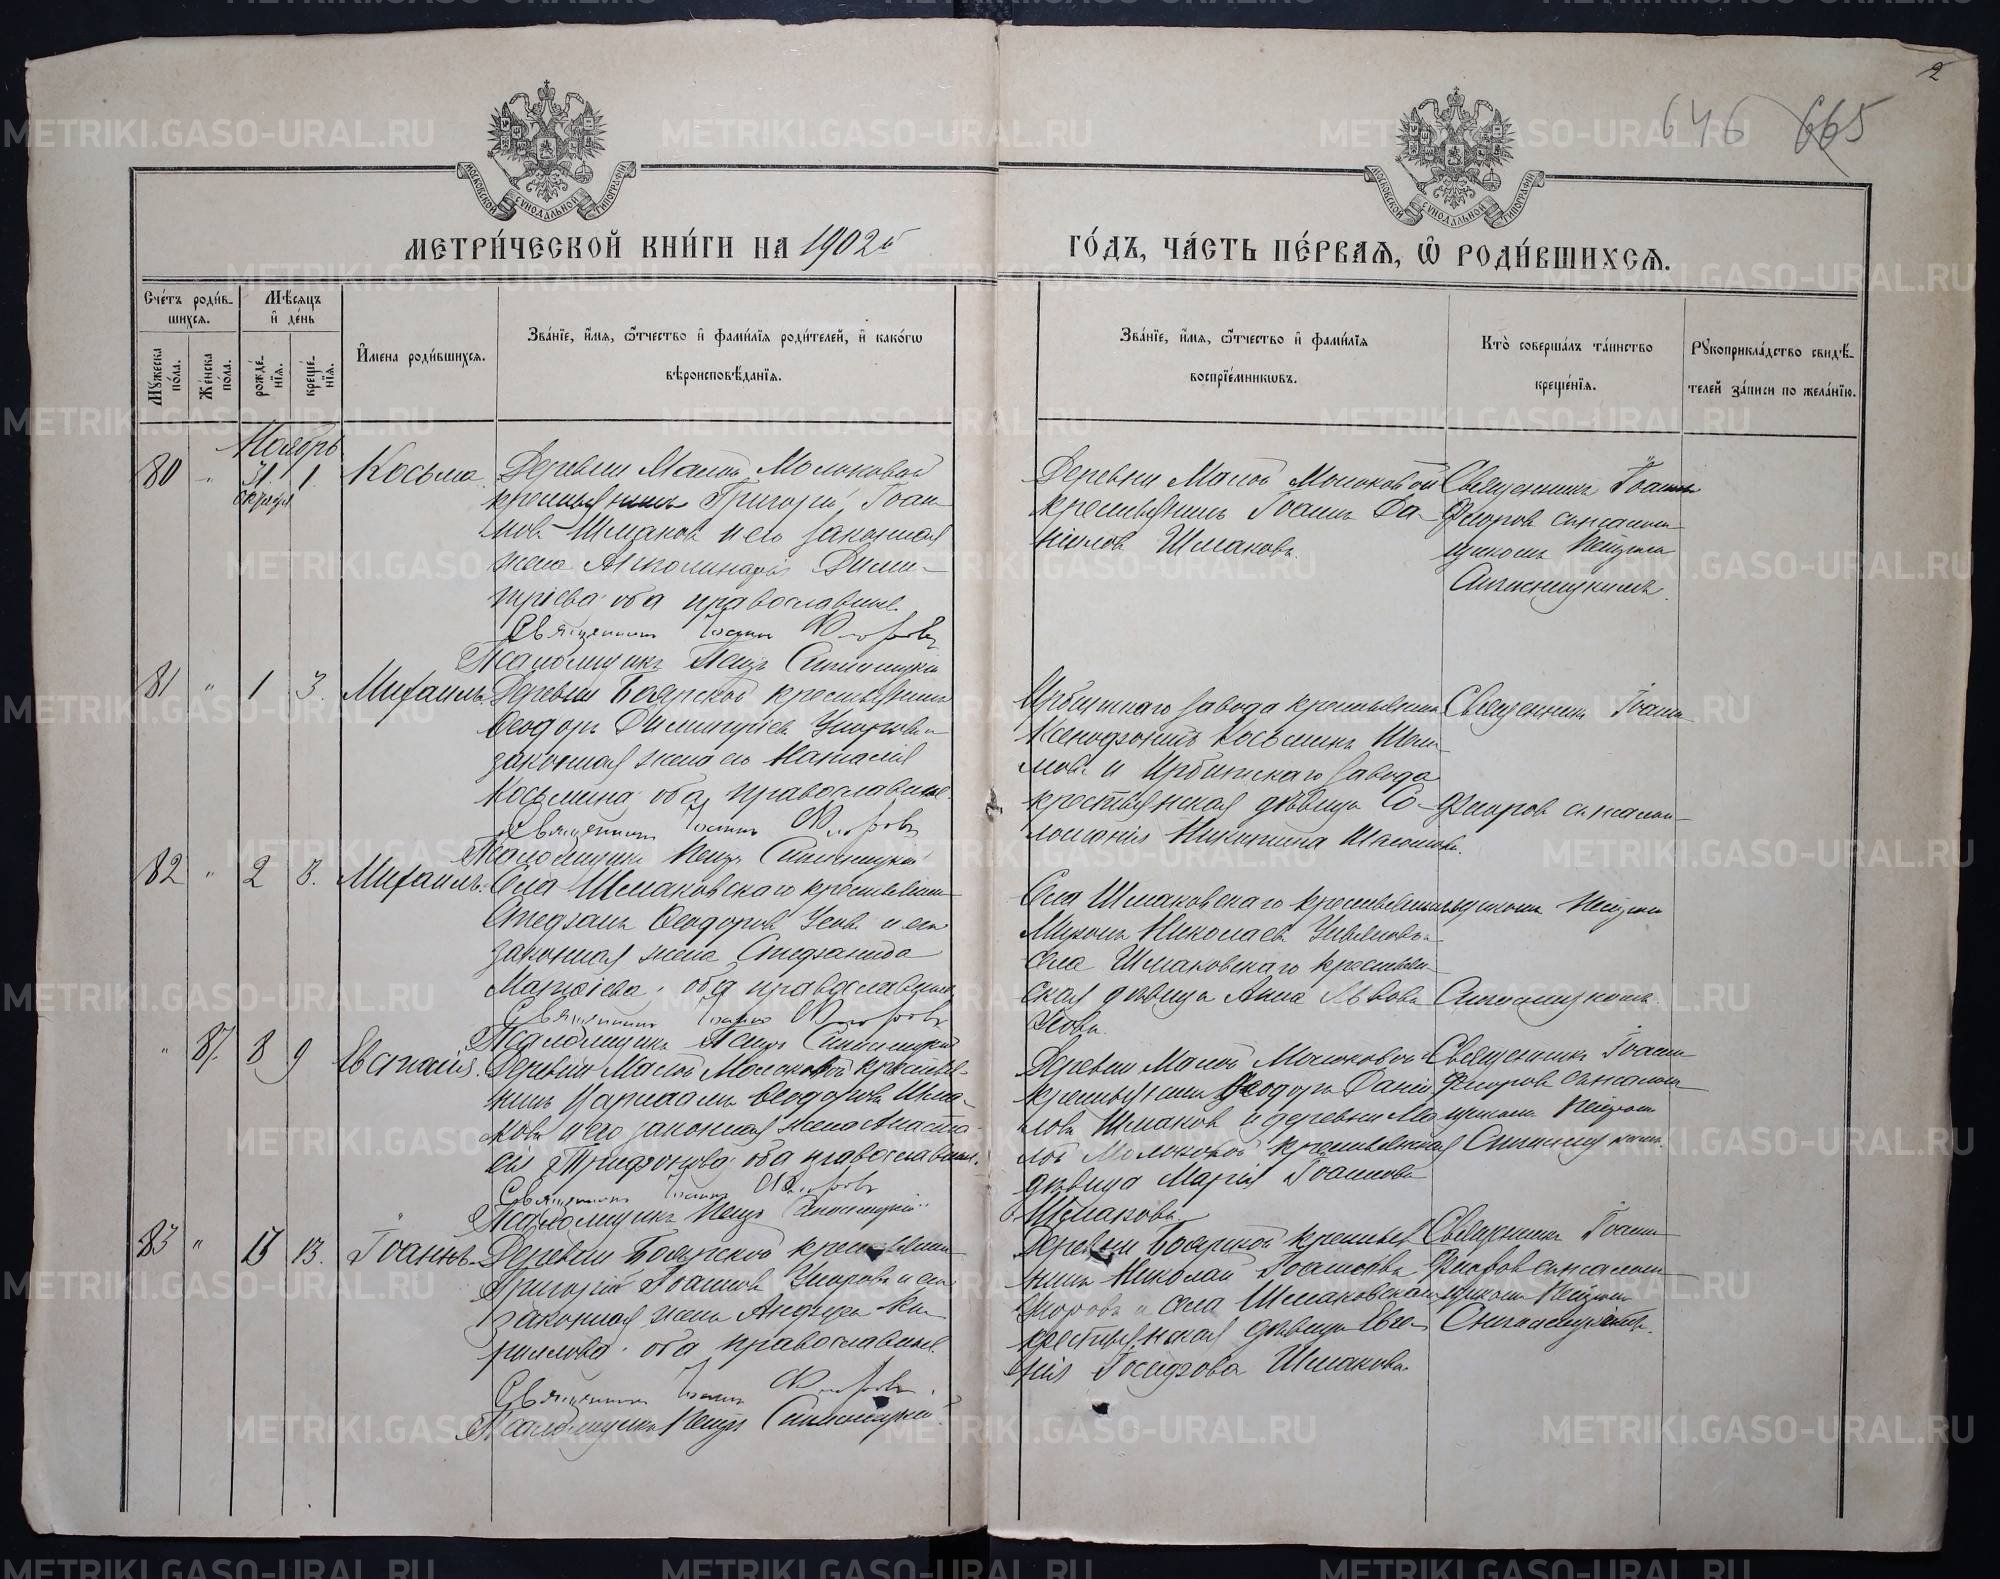 2
646 665
МОСКОВСКОЙ СУНОДАЛЬНОЙ ТИПОГРАФИИ
МОСКОВСКОЙ СУНОДАЛЬНОЙ ТИПОГРАФИИ
МЕТРИ́ЧЕСКОЙ КНИ́ГИ НА 1902й
ГО́ДЪ, ЧА́СТЬ ПЕ́РВАѦ, Ѽ РОДИ́ВШИХСѦ.
Сче́тъ роди́в-
шихся.
Мѣ́сяцъ
и҆ де́нь
Мꙋжеска по́ла.
Же́нска по́ла.
рожде́-нїя.
креще́-нїя.
И҆мена̀ роди́вшихся.
Зва́нїе, и҆́мя, ѻ҆́тчество и҆ фами́лїя роди́телей, и҆ како́гѡ
вѣроисповѣ́данїя.
Зва́нїе, и҆́мя, ѻ҆́тчество и҆ фами́лїя
воспрїе́мникѡвъ.
Кто̀ соверша́лъ та́инство
креще́нїя.
Рꙋкоприкла́дство свидѣ́-
телей за́писи по жела́нїю.
Ноябрь
80 " 31 1 Косьма
Октября
Деревни Малой Молоковой
крестьянинъ Григорій Іоан-
новъ Шмаковъ и его законная
жена Апполинарія Дими-
тріева оба православные.
Священникъ Іоаннъ Флоровъ
Псаломщикъ Петръ
Деревни Малой Молоковой
крестьянинъ Іоаннъ Да-
ниловъ Шмаковъ.
Священникъ Іоаннъ
Флоровъ съ псалом-
щикомъ Петромъ
81 " 1 3. Михаилъ.
Деревни Боярской крестьянинъ
Ѳеодоръ Димитріевъ и
законная жена его Наталія
Косьмина оба православные.
Священникъ Іоаннъ Флоровъ
Псаломщикъ Петръ
Ирбитскаго завода крестьянинъ
Ксенофонтъ Косьминъ
и Ирбитскаго завода
крестьянская дѣвица Со-
ломанія Никитина
Священникъ Іоаннъ
Флоровъ съ псалом-
82 " 2 3. Михаилъ.
Села Шмаковскаго крестьянинъ
Стефанъ Ѳеодоровъ Усовъ и его
законная жена Степанида
оба православные
Священникъ Іоаннъ Флоровъ
Псаломщикъ Петръ
Села Шмаковскаго крестьянинъ
Николаевъ
села Шмаковскаго крестьян-
ская дѣвица Анна Львова
Усова.
щикомъ Петромъ
" 87. 8 9 Евстолія.
Деревни Малой Молоковой крестья-
нинъ Варлаамъ Ѳеодоровъ Шма-
ковъ и его законная жена Анаста-
сія Трифонова оба православные.
Священникъ Іоаннъ Флоровъ
Псаломщикъ Петръ
Деревни Малой Молоковой
крестьянинъ Ѳеодоръ Дани-
ловъ Шмаковъ и деревни Ма-
лой Молоковой крестьянская
дѣвица Марія Іоаннова
Шмакова.
Священникъ Іоаннъ
Флоровъ съ псалом-
щикомъ Петромъ
83 " 13 13. Іоаннъ.
Деревни Боярской крестьянинъ
Григорій Іоанновъ и его
законная жена Ки-
риллова оба православные.
Священникъ Іоаннъ Флоровъ
Псаломщикъ Петръ
Деревни Боярской крестья-
нинъ Николай Іоанновъ
и села Шмаковскаго
крестьянская дѣвица Евге-
нія Іосифова Шмакова.
Священникъ Іоаннъ
Флоровъ съ псалом-
щикомъ Петромъ
METRIKI.GASO-URAL.RU